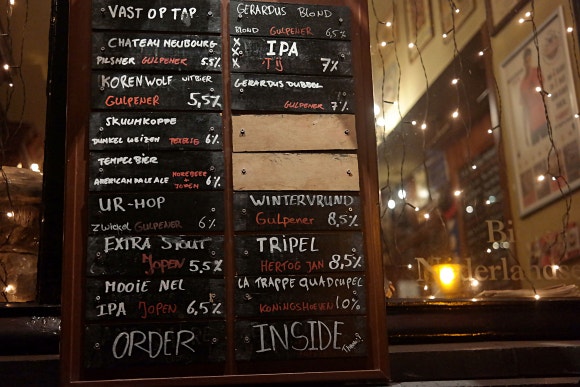 VAST OP TAP
CHATEAU NEUBOURG
PILSNER GULPENER 5,5%
KORENWOLF WITBIER
GULPENER 5,5%
SKUUMKOPPE
DUNKEL WEIZEN TEXELS 6%
TEMPELBIER
AMERICAN PALE ALE MOREBEER + JOPEN 6%
UR-HOP
ZWICKEL GULPENER 6%
EXTRA STOUT
JOPEN 5,5%
MOOIE NEL
IPA JOPEN 6,5%
ORDER
GERARDUS BLOND
BLOND GULPENER 6,5%
XXX IPA
'T IJ 7%
GERARDUS DUBBEL
GULPENER 7%
WINTERVRUND
GULPENER 8,5%
TRIPEL
HERTOG JAN 8,5%
LA TRAPPE QUADRUPEL
KONINGSHOEVEN 10%
INSIDE
Nederlandse